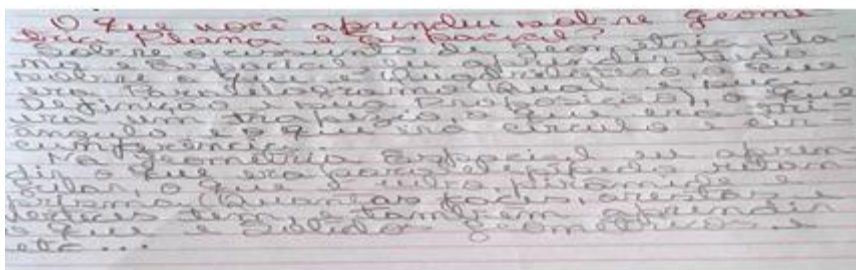 O que você aprendeu sobre geome
tria Plana e Espacial?
Sobre o assunto de geometria Pla-
na e Espacial eu aprendir tudo
sobre o que é Quadrilátero, o que
era Paralelogramo (Qual a sua
Definição e sua Proposição), o que
era um trapézio, o que era tri-
angulo e o que era circulo e cir
cunferência.
Na geometria Espacial eu apren
dir o que era paralelepipedo retan
gular, o que é cubo, piramide e
prisma (Quantas faces, arestas e
vertices tem, e também aprendir
o que é Solidos geometricos e
etc...